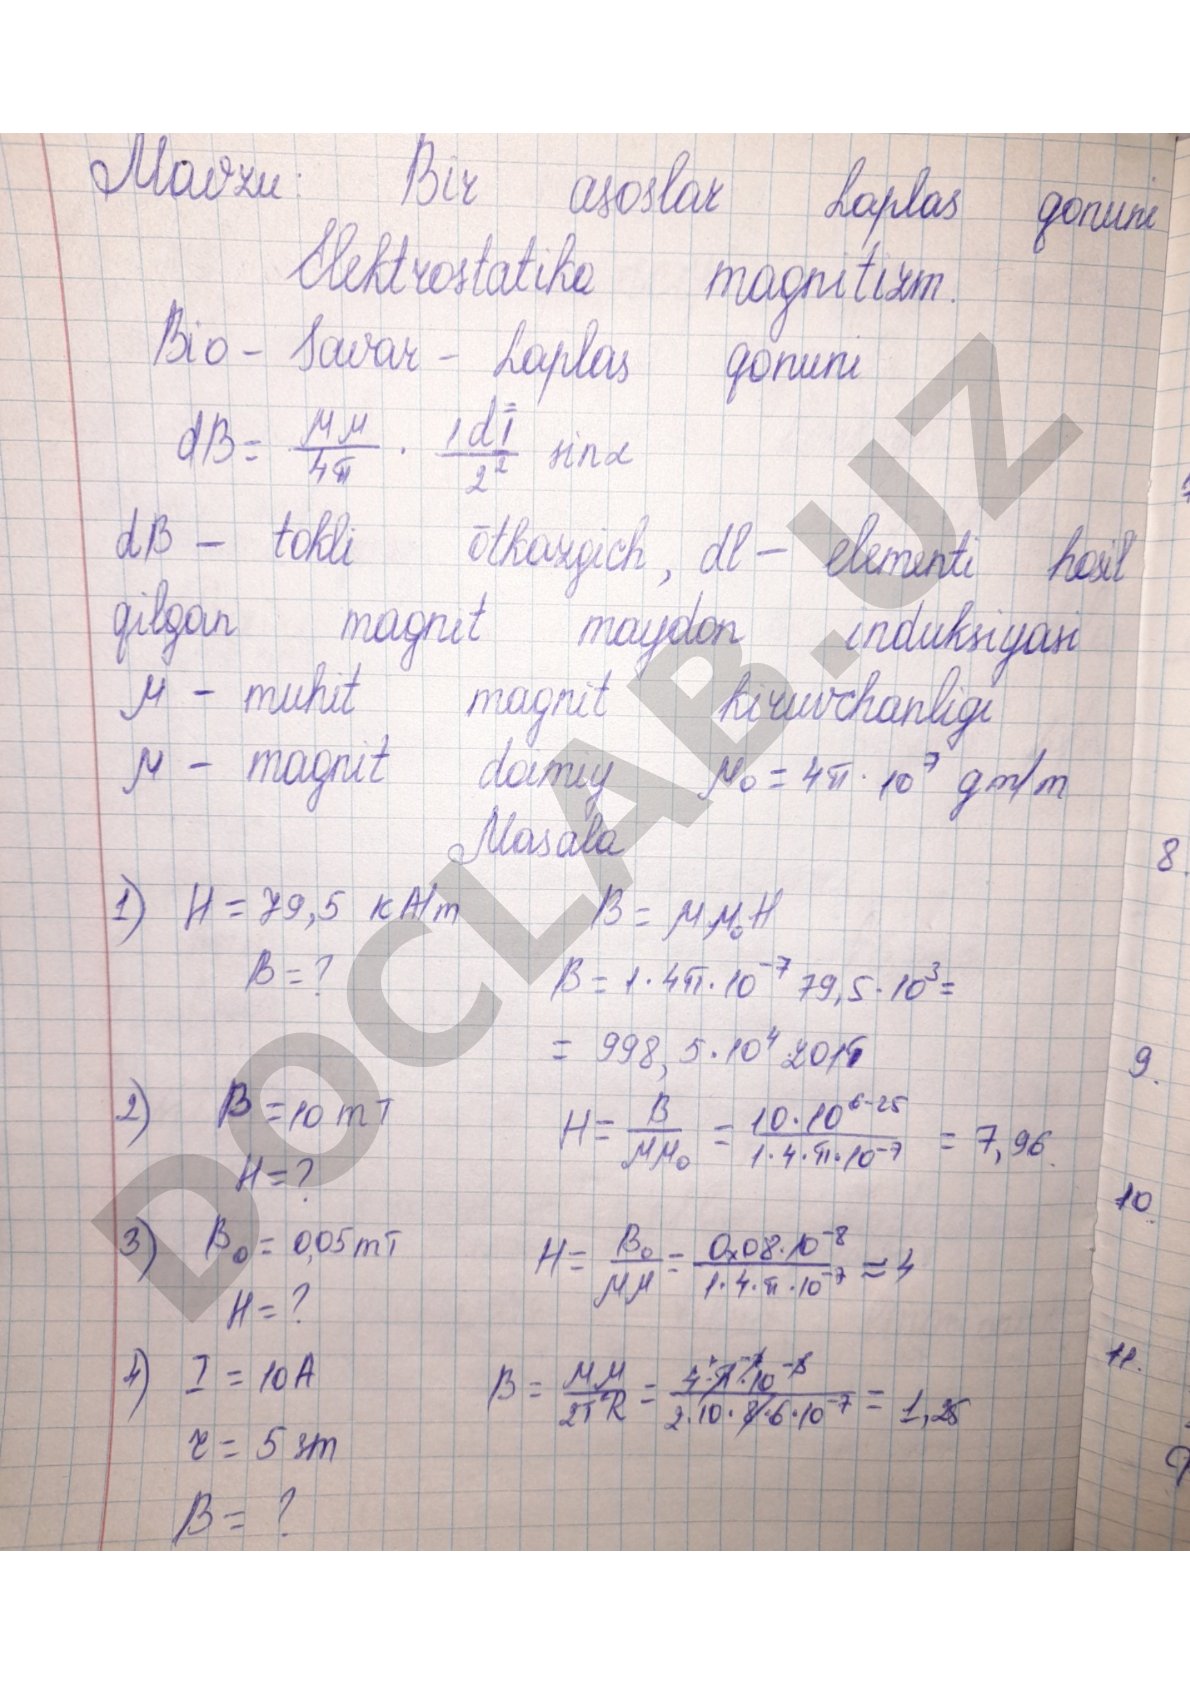 Mavzu: Bir asoslar Laplas qonuni
Elektrostatika magnitizm.
Bio - Savar - Laplas qonuni
dB = μμ/4π · 1dl/2² sinα
dB – tokli ōtkazgich, dl – elementi hosil
qilgan magnit maydon induksiyasi
μ – muhit magnit kiruvchanligi
μ – magnit doimiy μ₀ = 4π · 10⁷ gm/m
Masala
1) H = 79,5 kA/m B = μμ₀H
B = ? B = 1·4π·10⁻⁷ 79,5·10³ =
= 998,5·10⁴
2) B = 10 mT H = B/μμ₀ = 10·10⁶⁻²⁵/1·4·π·10⁻⁷ = 7,96.
H = ?
3) B₀ = 0,05 mT H = B₀/μμ = 0,08·10⁻⁸/1·4·π·10⁻⁷ ≈ 4
H = ?
4) I = 10A B = μμ/2πR = = 1,25
r = 5 sm
B = ?
8.
9.
10.
11.
DOCLAB.UZ